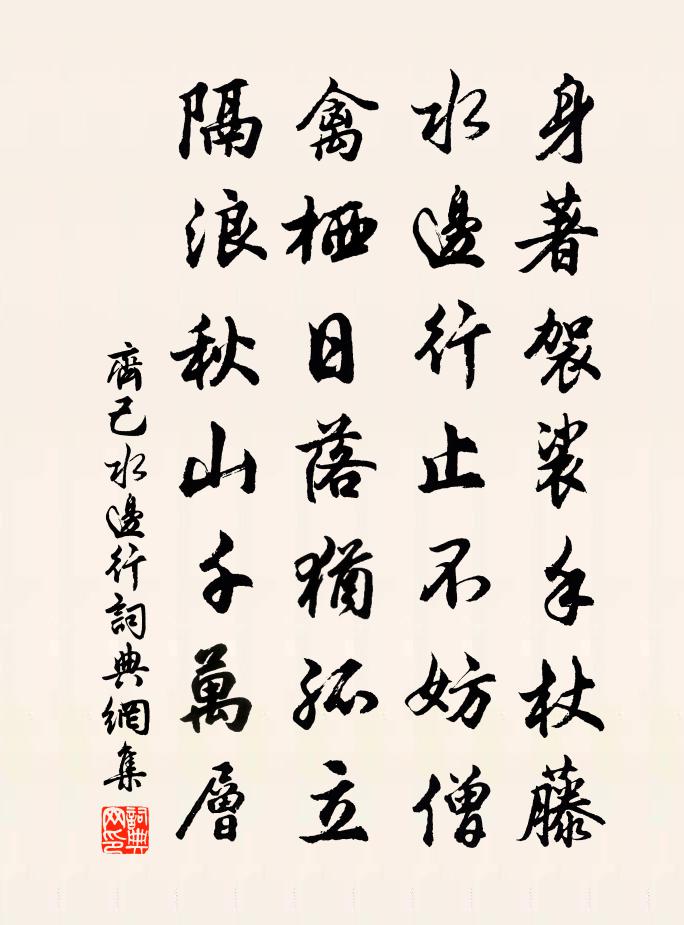 身著袈裟手杖藤
水邊行止不妨僧
禽栖日落猶孤立
隔浪秋山千萬層
齊己水邊行詞典網集
詞典網印